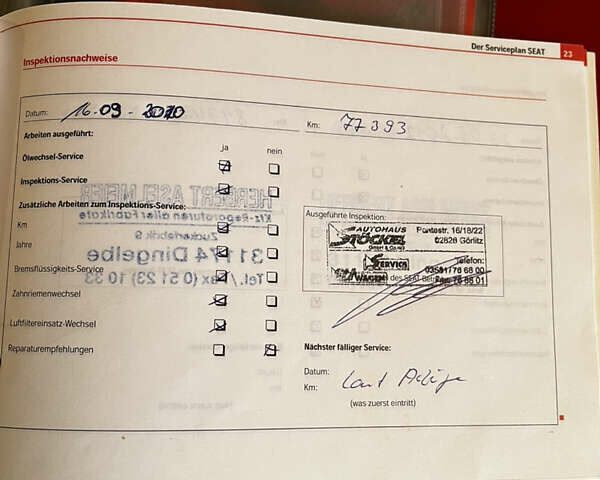 Der Serviceplan SEAT 23
Inspektionsnachweise
Datum: 16.09-2010 Km: 77393
Arbeiten ausgeführt:
ja nein
Ölwechsel-Service
Inspektions-Service
Zusätzliche Arbeiten zum Inspektions-Service:
Km
Jahre
Bremsflüssigkeits-Service
Zahnriemenwechsel
Luftfiltereinsatz-Wechsel
Reparaturempfehlungen
HERBERT ASELMEIER
Kfz-Reparaturen aller Fabrikate
Zuckerfabrik 9
31174 Dingelbe
Tel./Fax (0 51 23) 10 33
Ausgeführte Inspektion:
AUTOHAUS
STÖCKEL
GmbH & Co. KG
SERVICE
WAGEN
Pontestr. 16/18/22
02826 Görlitz
Telefon:
des SEAT
Nächster fälliger Service:
Datum:
Km: Laut Anzeige
(was zuerst eintritt)